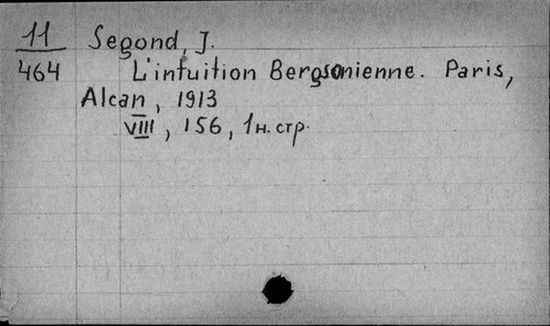 11
464
Segond, J.
L'intuition Bergsonienne. Paris,
Alcan, 1913
VIII, 156, 1 н. стр.